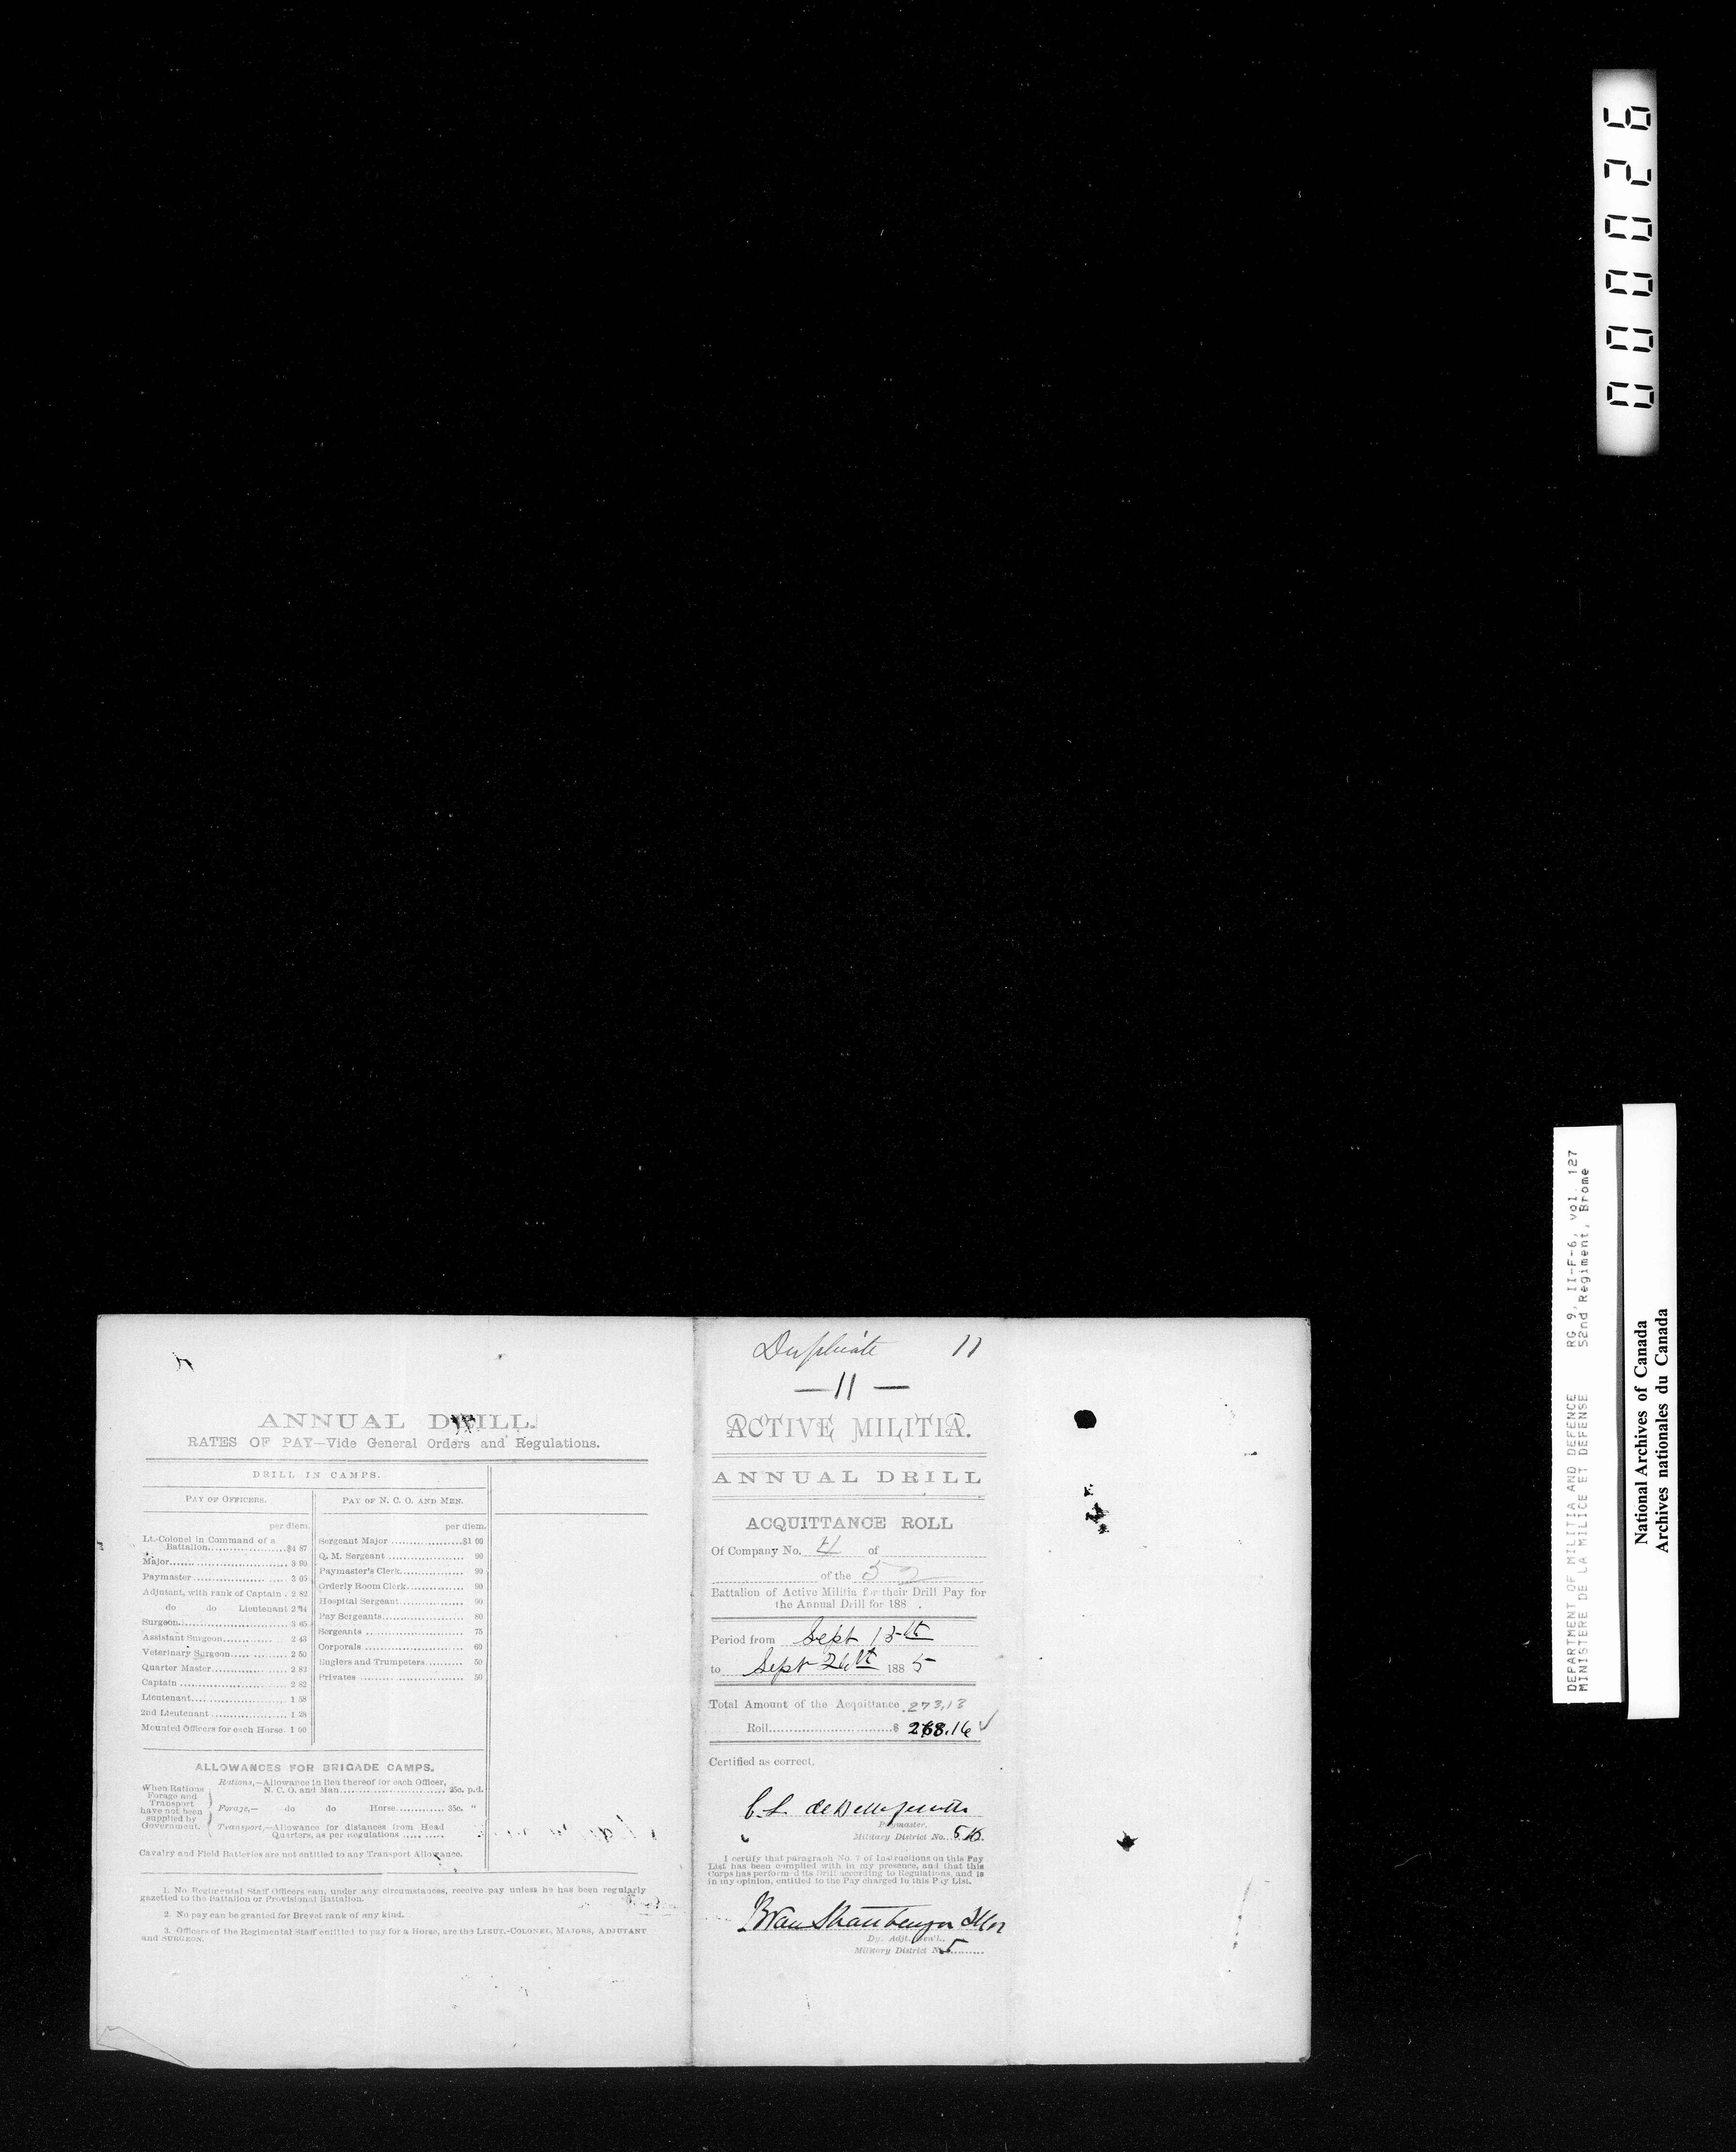 000026
DEPARTMENT OF MILITIA AND DEFENCE RG 9, II-F-6, vol. 127
MINISTERE DE LA MILICE ET DEFENSE 52nd Regiment, Brome
National Archives of Canada
Archives nationales du Canada
ANNUAL DRILL.
RATES OF PAY—Vide General Orders and Regulations.
DRILL IN CAMPS.
PAY OF OFFICERS.
per diem.
Lt.-Colonel in Command of a
Battalion..................$4 87
Major.................. 3 90
Paymaster.................. 3 05
Adjutant, with rank of Captain . 2 82
do do Lieutenant 2 44
Surgeon.................. 3 65
Assistant Surgeon.................. 2 43
Veterinary Surgeon.................. 2 50
Quarter Master.................. 2 82
Captain .................. 2 82
Lieutenant.................. 1 58
2nd Lieutenant .................. 1 28
Mounted Officers for each Horse. 1 00
PAY OF N. C. O. AND MEN.
per diem.
Sergeant Major ..................$1 00
Q. M. Sergeant .................. 90
Paymaster's Clerk.................. 90
Orderly Room Clerk.................. 90
Hospital Sergeant.................. 90
Pay Sergeants.................. 80
Sergeants .................. 75
Corporals .................. 60
Buglers and Trumpeters.......... 50
Privates .................. 50
ALLOWANCES FOR BRIGADE CAMPS.
When Rations
Forage and
Transport
have not been
supplied by
Government.
Rations,—Allowance in lieu thereof for each Officer,
N. C. O. and Man.................. 25c. p.d.
Forage,— do do Horse............ 35c. "
Transport,—Allowance for distances from Head
Quarters, as per Regulations ..........
Cavalry and Field Batteries are not entitled to any Transport Allowance.
1. No Regimental Staff Officers can, under any circumstances, receive pay unless he has been regularly
gazetted to the Battalion or Provisional Battalion.
2. No pay can be granted for Brevet rank of any kind.
3. Officers of the Regimental Staff entitled to pay for a Horse, are the LIEUT.-COLONEL, MAJORS, ADJUTANT
and SURGEON.
Duplicate 11
—11—
ACTIVE MILITIA.
ANNUAL DRILL
ACQUITTANCE ROLL
Of Company No. 4 of
of the 52
Battalion of Active Militia for their Drill Pay for
the Annual Drill for 188 .
Period from Sept 15th
to Sept 26th 188 5
Total Amount of the Acquittance 273,13
Roll..................$ 268.16
Certified as correct,
Paymaster.
Military District No. 5
I certify that paragraph No. 7 of Instructions on this Pay
List has been complied with in my presence, and that this
Corps has performed its Drill according to Regulations, and is
in my opinion, entitled to the Pay charged in this Pay List.
Dy. Adjt. Gen'l.,
Military District No. 5